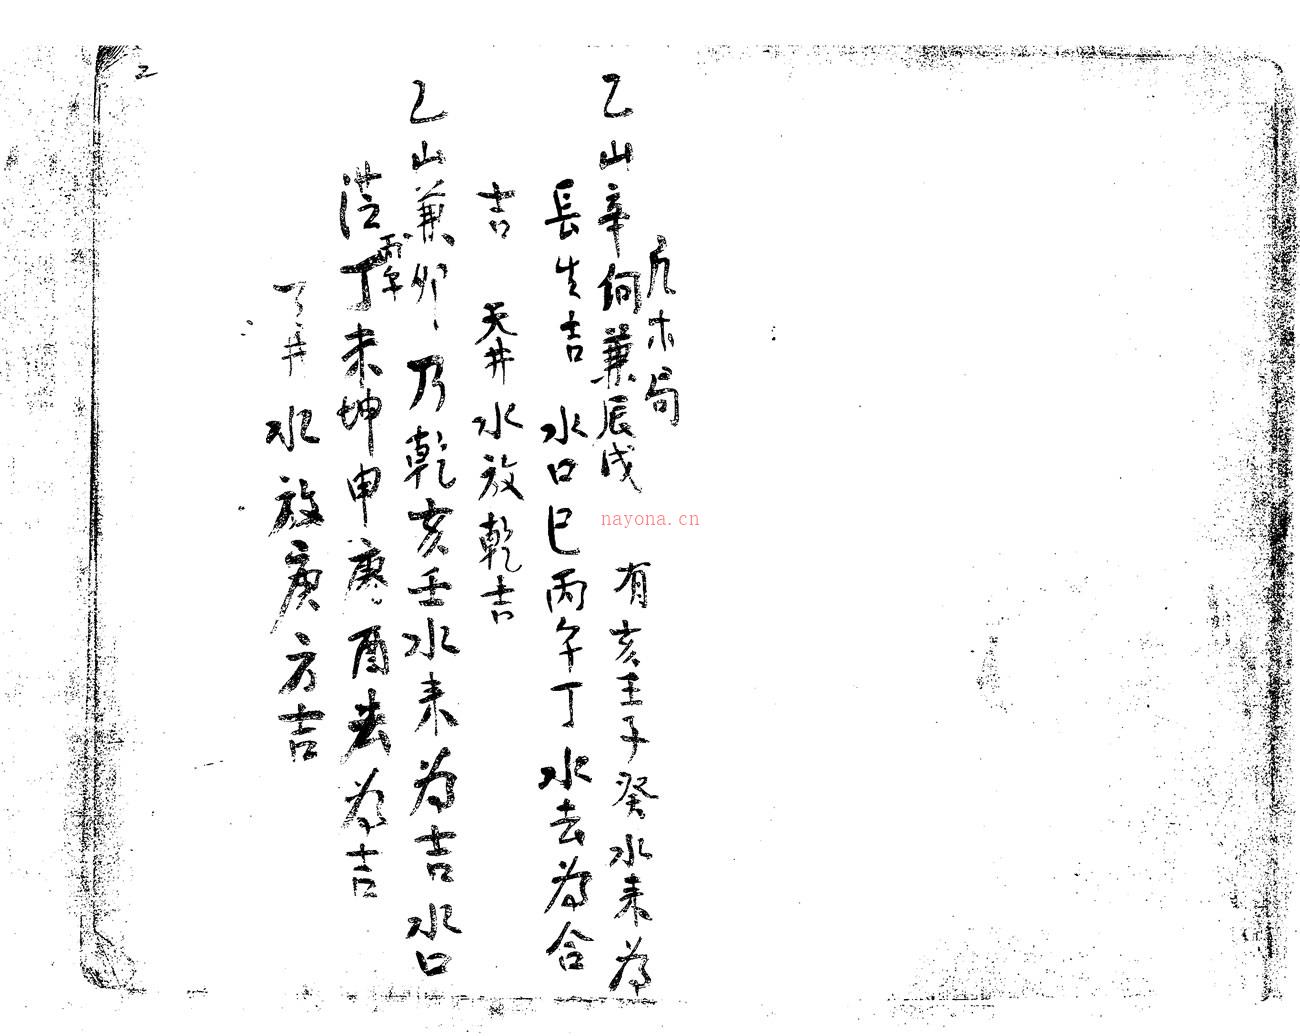 木局
乙山辛向兼辰戌 有亥壬子癸水来为
長生吉 水口巳丙午丁水去为合
吉 天井水放乾吉
乙山兼卯乃乾亥壬水来为吉水口
丁未坤申庚酉去为吉
丙午
井水放庚方吉
2
nayona.cn